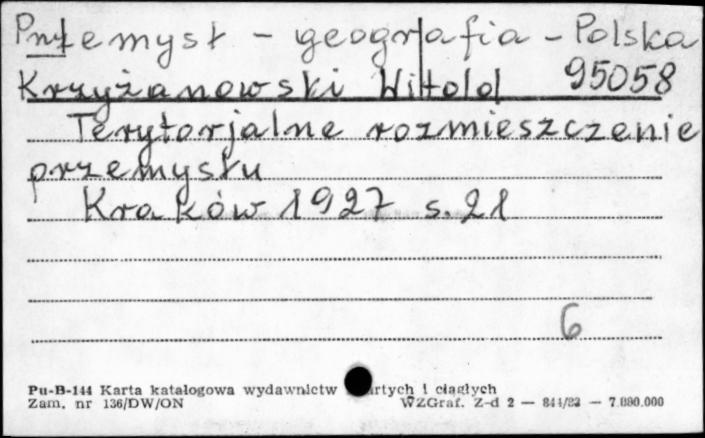 Przemysł - geografia - Polska
Krzyżanowski Witold 95058
Terytorjalne rozmieszczenie
przemysłu
Kraków 1927 s. 21
6
Pu-B-144 Karta katalogowa wydawnictw artych i ciągłych
Zam. nr 136/DW/ON WZGraf. Z-d 2 — 844/82 — 7.000.000